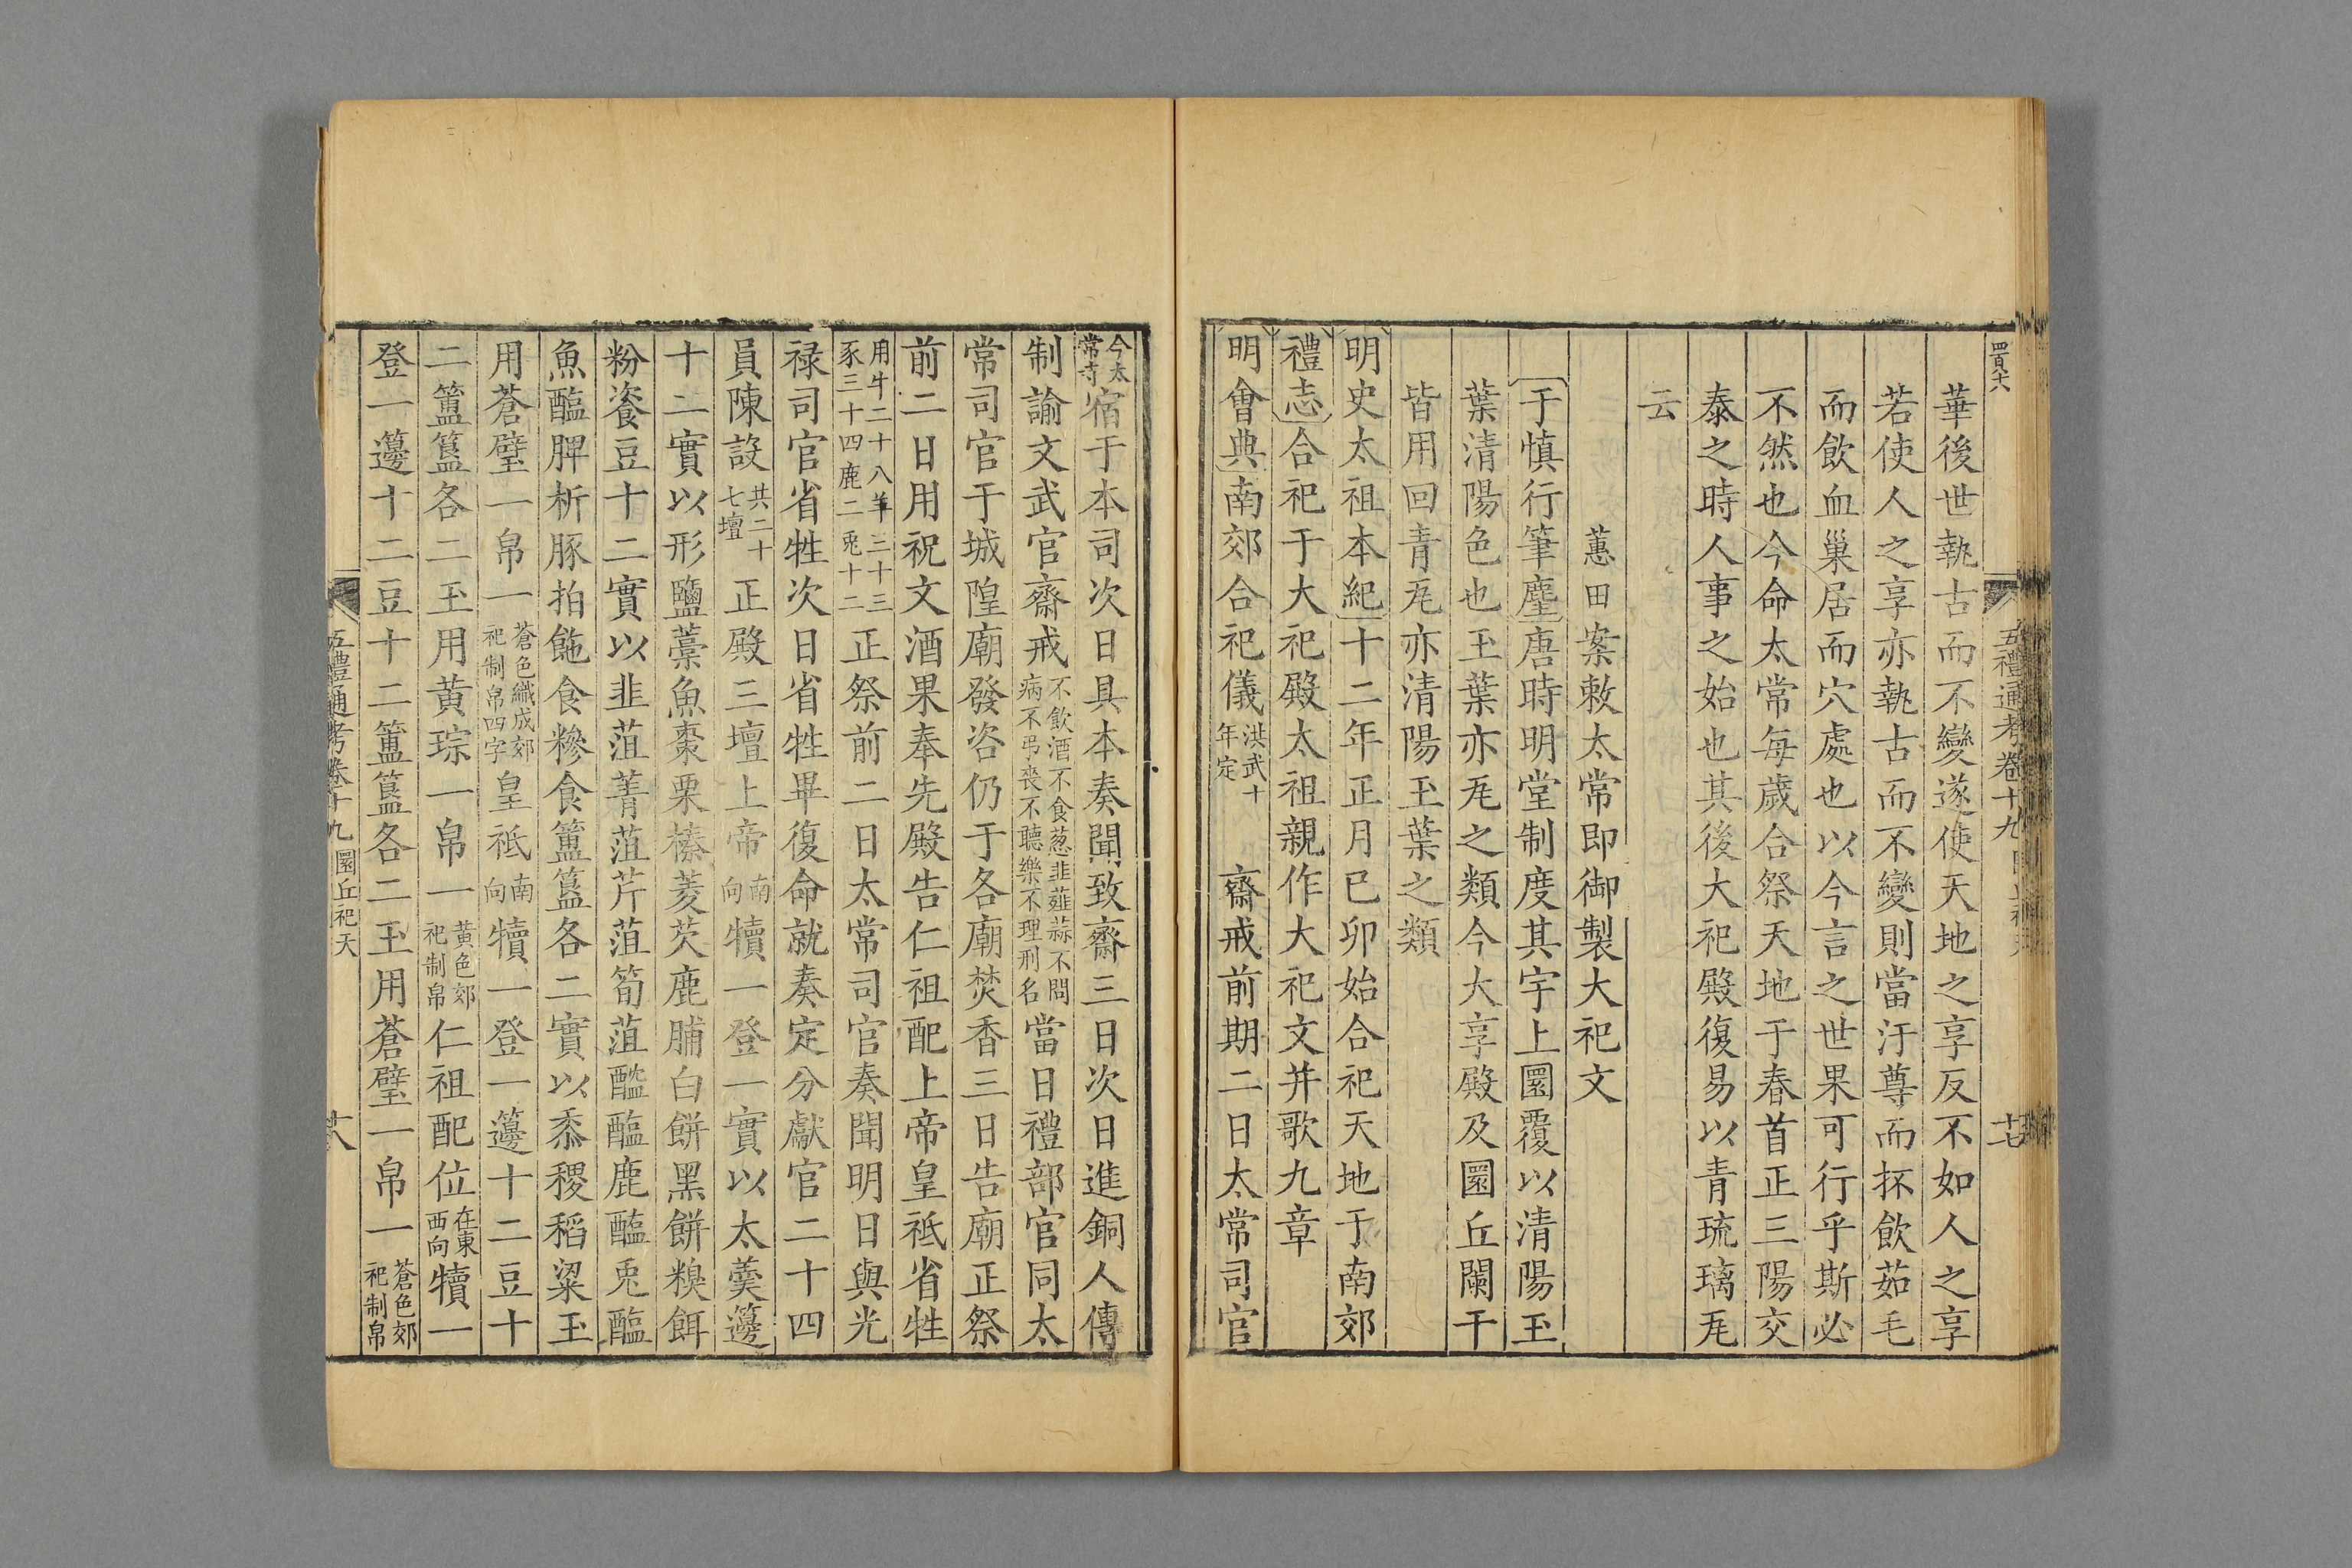 五禮通考卷十九
華後世執古而不變遂使天地之享反不如人之享
若使人之享亦執古而不變則當汙尊而抔飲茹毛
而飲血巢居而穴處也以今言之世果可行乎斯必
不然也今命太常每歲合祭天地于春首正三陽交
泰之時人事之始也其後大祀殿復易以青琉璃瓦
云
蕙田案敕太常即御製大祀文
于慎行筆麈唐時明堂制度其宇上圜覆以清陽玉
葉清陽色也玉葉亦瓦之類今大享殿及圜丘闌干
皆用回青瓦亦清陽玉葉之類
明史太祖本紀十二年正月己卯始合祀天地于南郊
禮志合祀于大祀殿太祖親作大祀文并歌九章
明會典南郊合祀儀洪武十年定 齋戒前期二日太常司官
今太常寺宿于本司次日具本奏聞致齋三日次日進銅人傳
制諭文武官齋戒不飲酒不食葱韭薤蒜不問病不弔喪不聽樂不理刑名當日禮部官同太
常司官于城隍廟發咨仍于各廟焚香三日告廟正祭
前二日用祝文酒果奉先殿告仁祖配上帝皇祇省牲
用牛二十八羊三十三豕三十四鹿二兎十二正祭前二日太常司官奏聞明日與光
禄司官省牲次日省牲畢復命就奏定分獻官二十四
員陳設共二十七壇正殿三壇上帝南向犢一登一實以太羹籩
十二實以形鹽藁魚棗栗榛菱芡鹿脯白餅黑餅糗餌
粉餈豆十二實以韭菹菁菹芹菹筍菹醓醢鹿醢兎醢
魚醢脾析豚拍飿食糝食簠簋各二實以黍稷稻粱玉
用蒼璧一帛一蒼色織成郊祀制帛四字皇祇南向犢一登一籩十二豆十
二簠簋各二玉用黄琮一帛一黃色郊祀制帛仁祖配位在東西向犢一
登一籩十二豆十二簠簋各二玉用蒼璧一帛一蒼色郊祀制帛
五禮通考卷十九 圜丘祀天